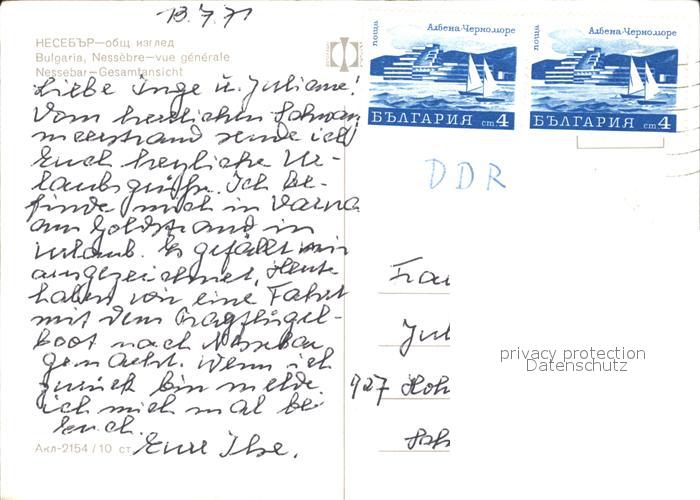 13.7.71
НЕСЕБЪР—общ изглед
Bulgaria, Nessèbre—vue générale
Nessebar—Gesamtansicht
Liebe Inge u. Juliane!
Vom herrlichen Schwarz
meerstrand sende ich
Euch herzliche Ur-
laubsgrüße. Ich be-
finde mich in Varna
am Goldstrand in
Urlaub. Es gefällt mir
ausgezeichnet. Heute
haben wir eine Fahrt
mit dem Tragflügel-
boot nach Nessebar
gemacht. Wenn ich
zurück bin melde
ich mich mal bei
Euch.
Eure Ilse.
Акл-2154/10 ст
поща
Албена-Черноморе
БЪЛГАРИЯ ст 4
поща
Албена-Черноморе
БЪЛГАРИЯ ст 4
DDR
Frau
Jul
927 Hoh
privacy protection
Datenschutz